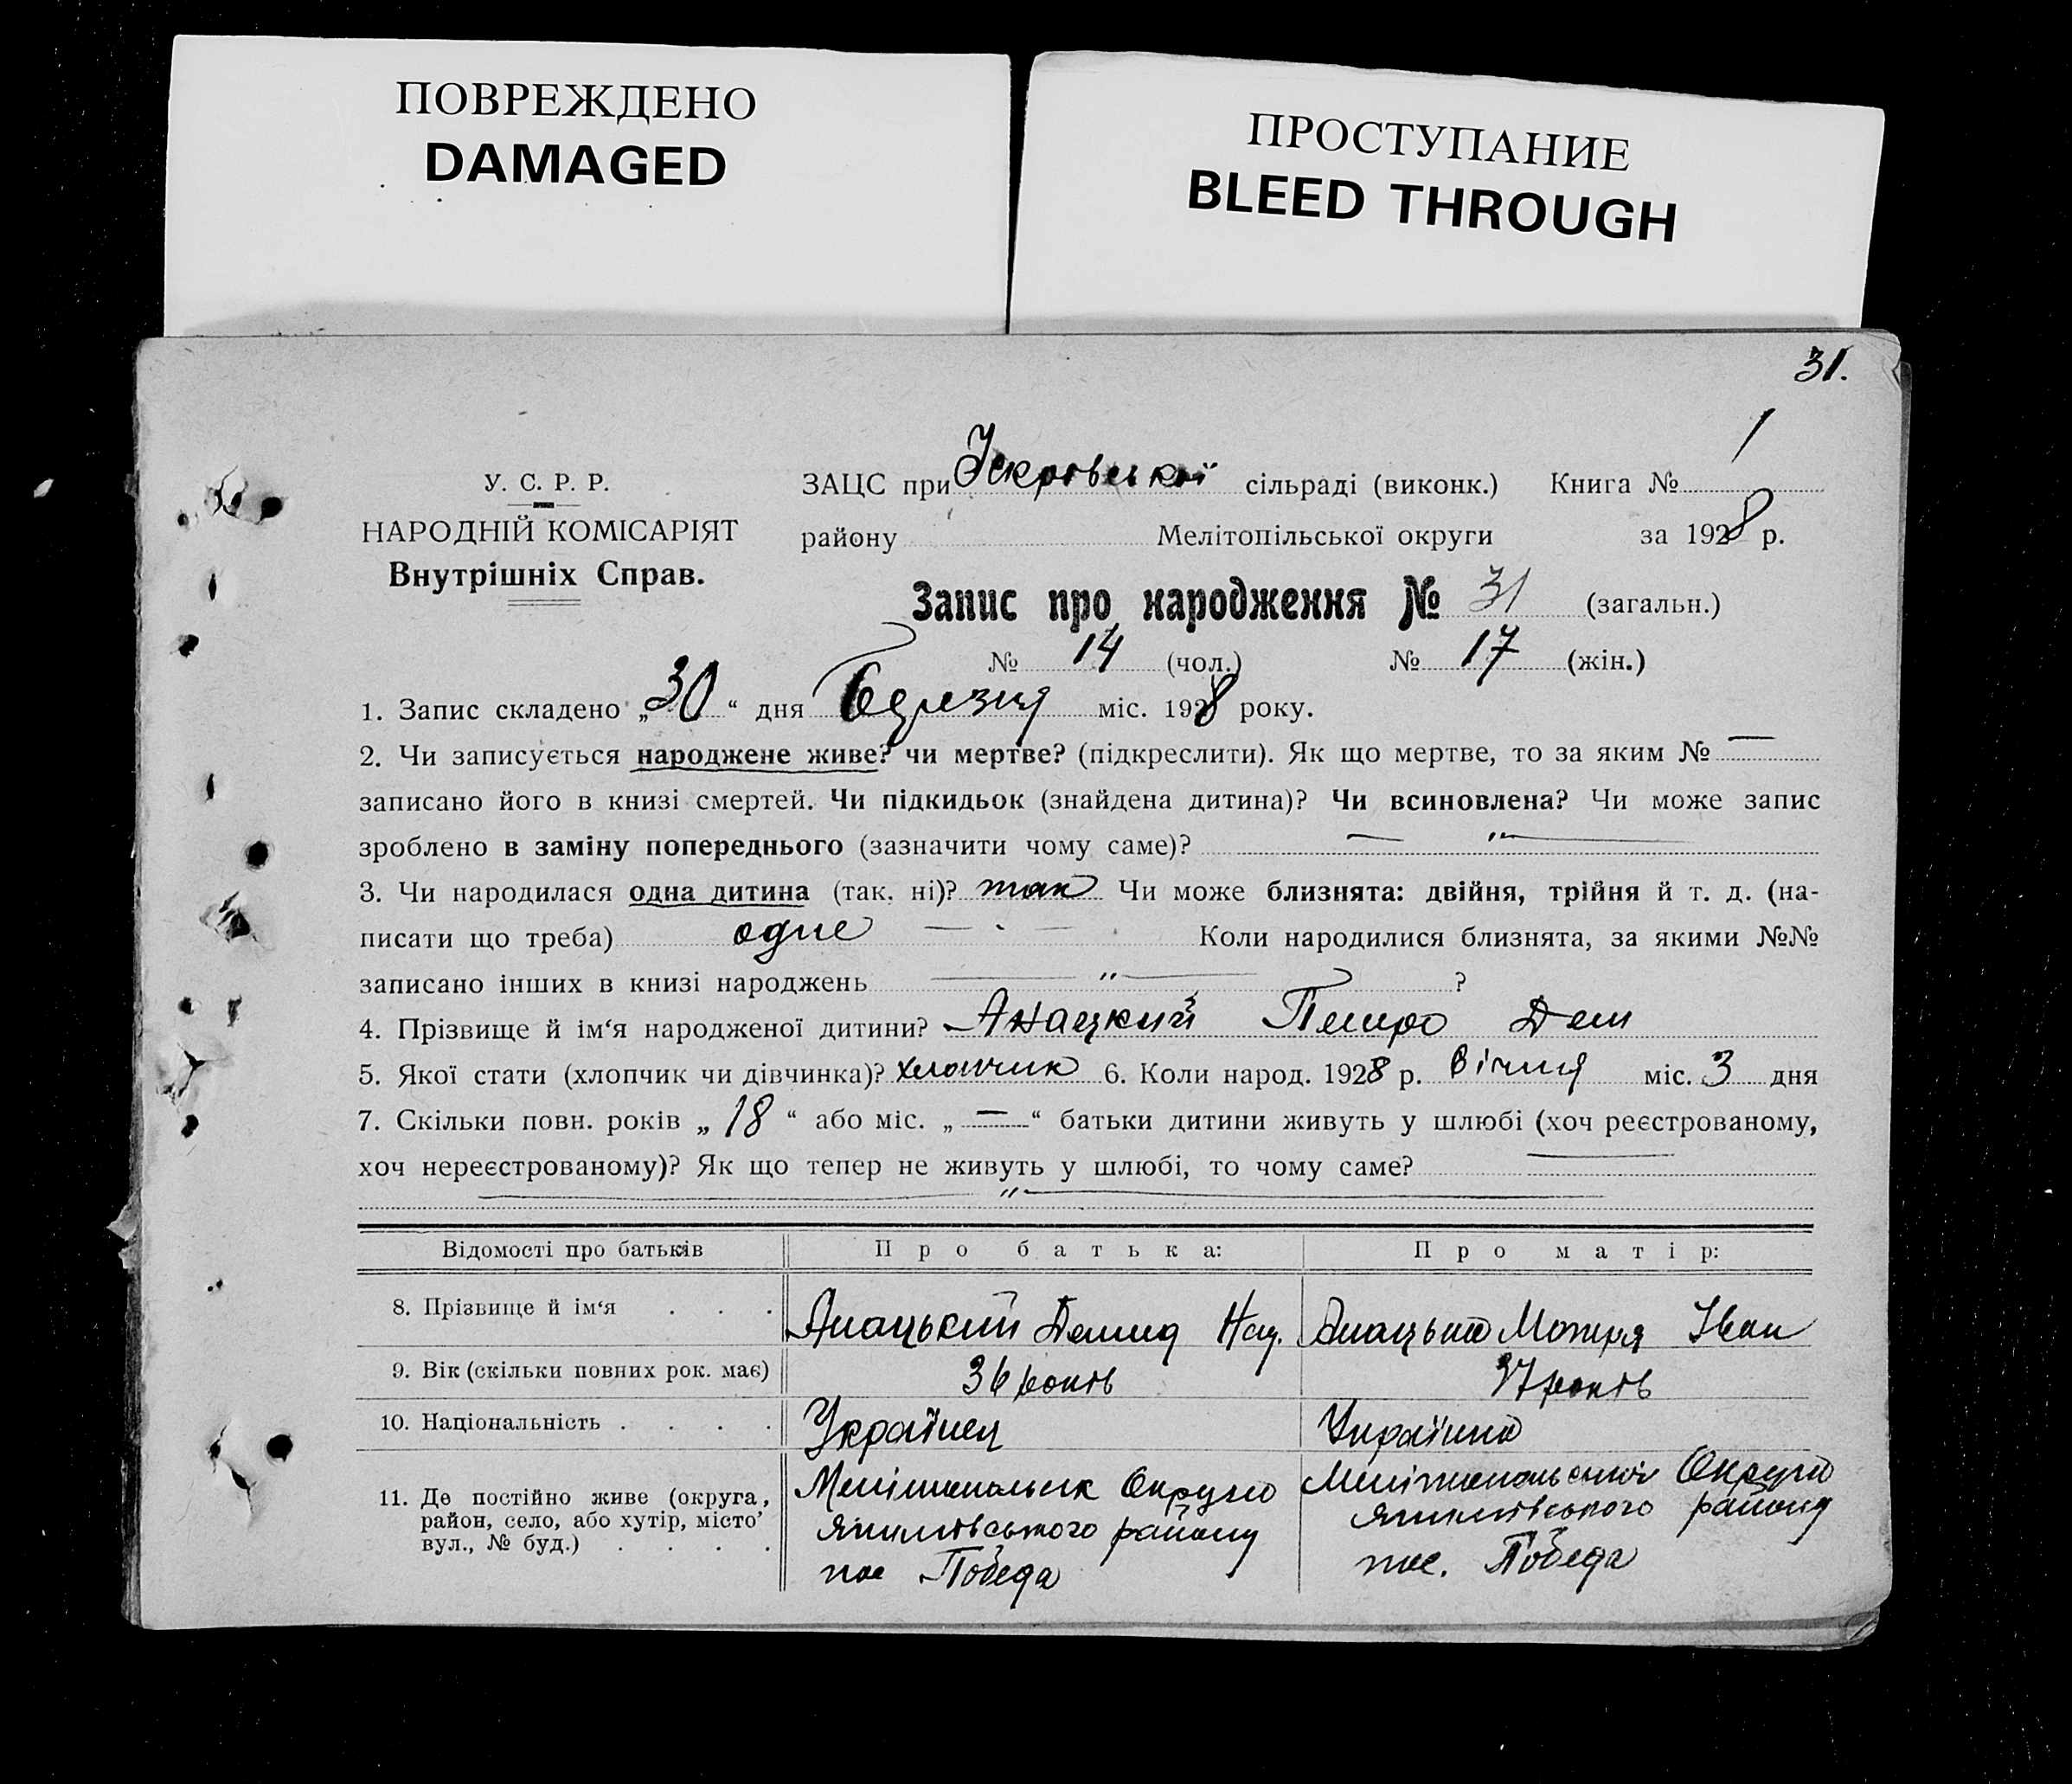 ПОВРЕЖДЕНО
DAMAGED
ПРОСТУПАНИЕ
BLEED THROUGH
31.
У. С. Р. Р.
НАРОДНІЙ КОМІСАРІЯТ
Внутрішніх Справ.
ЗАЦС при Іскровської сільраді (виконк.) Книга № 1
району Мелітопільської округи за 1928 р.
Запис про народження № 31 (загальн.)
№ 14 (чол.) № 17 (жін.)
1. Запис складено „30“ дня Березня міс. 1928 року.
2. Чи записується народжене живе? чи мертве? (підкреслити). Як що мертве, то за яким № —
записано його в книзі смертей. Чи підкидьок (знайдена дитина)? Чи всиновлена? Чи може запис
зроблено в заміну попереднього (зазначити чому саме)? — „ —
3. Чи народилася одна дитина (так, ні)? так Чи може близнята: двійня, трійня й т. д. (на-
писати що треба) одне — · — Коли народилися близнята, за якими №№
записано інших в книзі народжень — „ — ?
4. Прізвище й ім‘я народженої дитини? Анацкий Петро Дем
5. Якої стати (хлопчик чи дівчинка)? хлопчик 6. Коли народ. 1928 р. Січня міс. 3 дня
7. Скільки повн. років „18“ або міс. „—“ батьки дитини живуть у шлюбі (хоч реєстрованому,
хоч нереєстрованому)? Як що тепер не живуть у шлюбі, то чому саме? —
— „ —
Відомості про батьків Про батька: Про матір:
8. Прізвище й ім‘я . . . Анацький Демид Нау. Анацька Мотря Іван
9. Вік (скільки повних рок. має) 36 років 37 років
10. Національність . . . . Українец Українка
11. Де постійно живе (округа, район, село, або хутір, місто’ вул., № буд.) . . . .
Мелітопольськ Округа
Якимівського району
пос Победа
Мелітопольської Округа
Якимівського району
пос. Победа